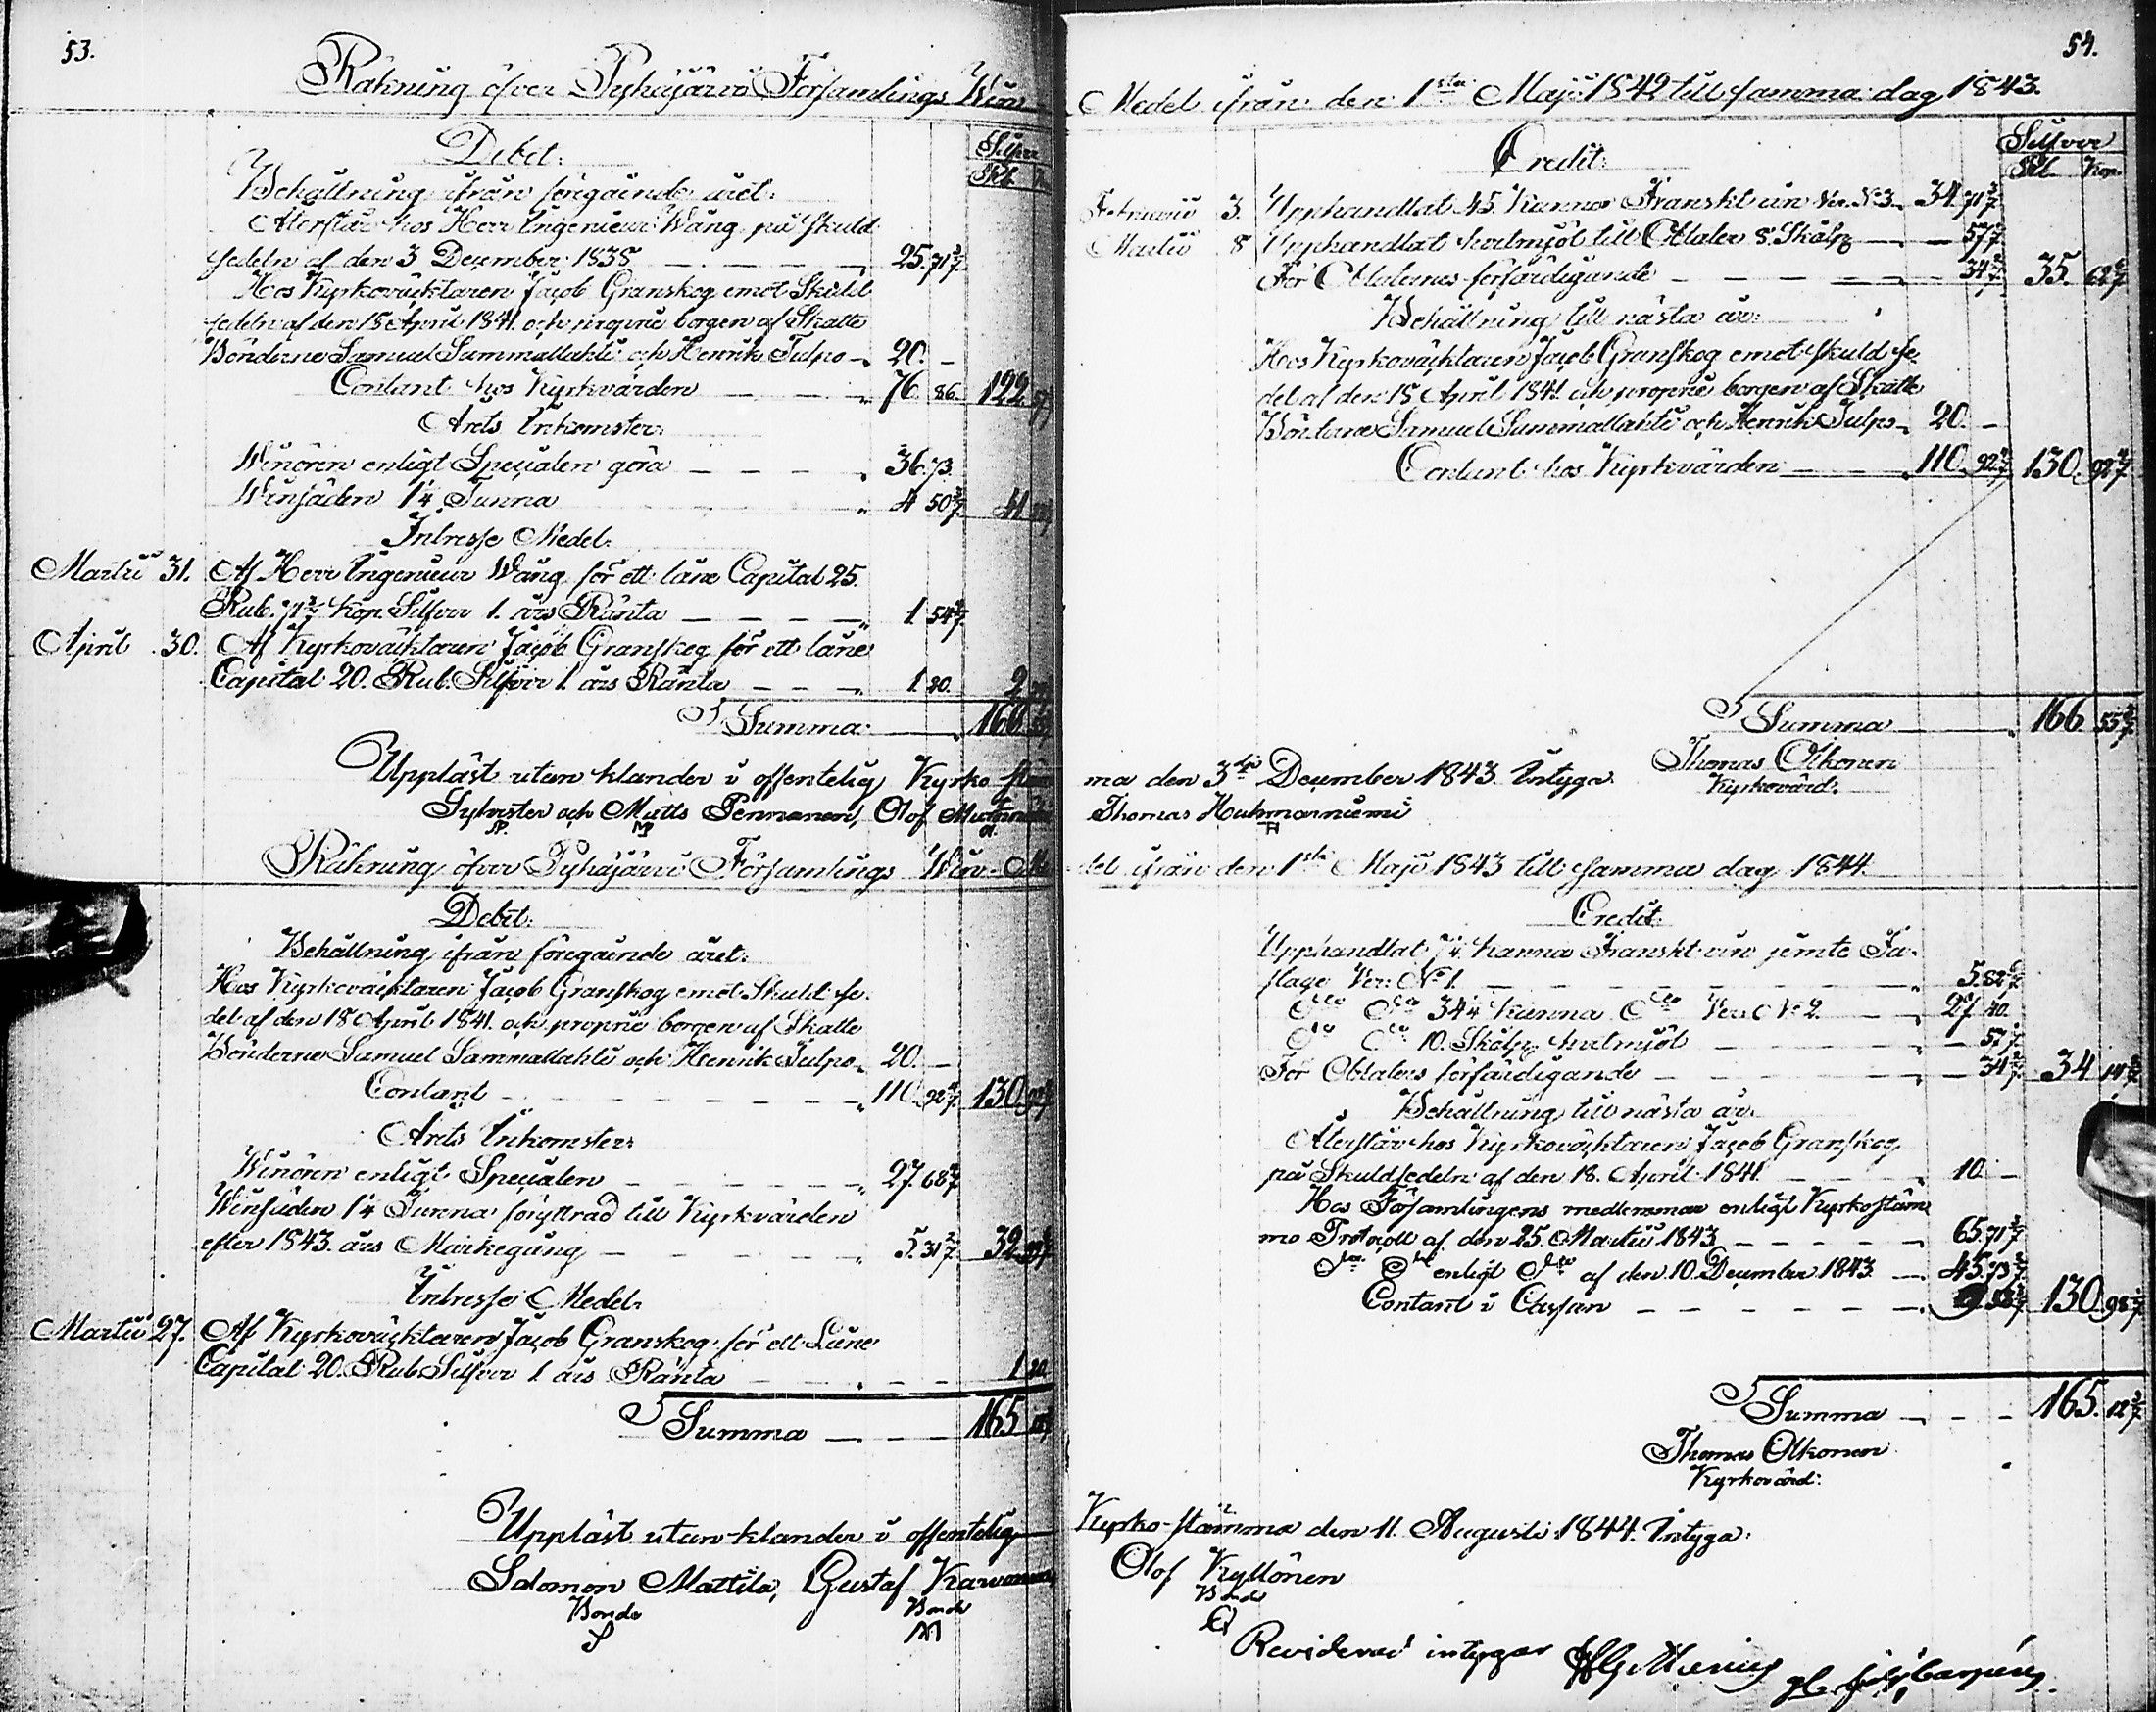 53.
Räkning öfver Pyhäjärvi Församlings Win
Debet.
Silfver
Rbl. K
Behållning ifrån föregående året.
Återstår hos Herr Ingenieur Wång på Skuld
sedeln af den 3 December 1838 25. 71 3/7
Hos Kyrkoväcktaren Jacob Granskog emot Skuld
sedeln af den 18 April 1841. och proprie borgen af Skatte
Bönderne Samuel Sammallahti och Henrik Tulpo 20. –
Contant hos Kyrkvärden 76. 86. 122.
Årets Inkomster.
Winören enligt Specialen göra 36. 73.
Winsäden 1¼ Tunna 4 50 41
Intresse Medel.
Martii 31. Af Herr Ingenieur Wång för ett låne Capital 25.
Rub. 71 3/7 Kop. Silfver 1. års Ränta 1 54 2/7
April 30. Af Kyrkoväcktaren Jacob Granskog för ett låne
Capital 20. Rub. Silfver 1 års Ränta 1. 20. 2
Summa 166.
Uppläst utan klander i offentelig Kyrko stäm
Sylvester och Matts Pennanen, Olof
SP. MP
Räkning öfver Pyhäjärvi Församlings Win-Me
Debet.
Behållning ifrån föregående året.
Hos Kyrkoväcktaren Jacob Granskog emot Skuld se-
del af den 18 April 1841. och proprie borgen af Skatte
Bönderne Samuel Sammallahti och Henrik Tulpo 20. –
Contant 110. 92 4/7 130. 92 4/7
Årets Inkomster.
Winören enligt Specialen 27. 68
Winsäden 1¼ Tunna föryttrad till Kyrkvärden
efter 1843. års Markegång 5. 31 2/7 32.
Intresse Medel.
Martii 27. Af Kyrkoväcktaren Jacob Granskog för ett Låne
Capital 20. Rub Silfver 1 års Ränta 1 20.
Summa 165
Uppläst utan klander i offentelig
Salomon Mattila, Gustaf Karvonen
Bonde Bonde
54.
Medel ifrån den 1sta Maji 1842 till samma dag 1843.
Credit.
Silfver
Rbl. Kop.
Februarii 3. Upphandlat 45 Kannor Franskt vin Ver. No 3. 34. 71 3/7
Martii 8 Upphandlat hvetmjöl till Oblater 8. Skålp 57
För Oblaternas förfärdigande 34 2/7 35. 62 6/7
Behållning till nästa år.
Hos Kyrkoväcktaren Jacob Granskog emot skuld se-
del af den 18 April 1841 och proprie borgen af Skatte
Bönderne Samuel Sammallahti och Henrik Tulpo 20. –
Contant hos Kyrkvärden 110. 92 4/7 130. 92 4/7
Summa 166 55 3/7
ma den 3dje December 1843. Intyga. Thomas Olkonen
Kyrkovärd.
Thomas Huhmarniemi
TH
del ifrån den 1sta Maji 1843 till samma dag 1844.
Credit.
Upphandlat 7¼ Kanna Franskt vin jemte Fa-
stage Ver. No 1. 5. 82 6/7
34¼ Kanna Ver. No 2. 27 40.
10. Skålp hvetmjöl 57
För Oblaters förfärdigande 34 2/7 34 14 2/7
Behållning till nästa år.
Återstår hos Kyrkoväcktaren Jacob Granskog
på Skuldsedeln af den 18. April 1841 10. –
Hos Församlingens medlemmar enligt Kyrkostäm-
mo Protocoll af den 25. Martii 1843 65. 71 3/7
enligt af den 10. December 1843 45. 73
Contant i Cassan 130. 98
Summa 165. 12 3/7
Thomas Olkonen
Kyrkovärd.
Kyrko-stämma den 11. Augusti 1844. Intyga:
Olof Kyllönen
Bonde
Revideradt intygar